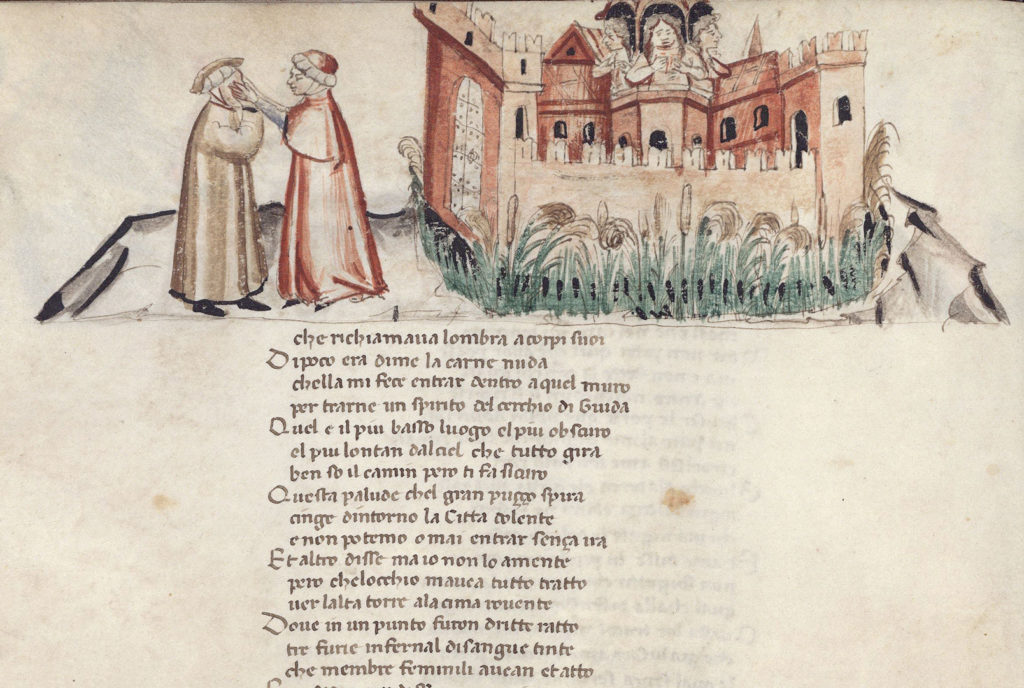 che richiamaua lombra acorpi suoi
Dipoco era dime la carne nuda
chella mi fece entrar dentro aquel muro
per trarne un spirito del cerchio di Guida
Quel e il piu basso luogo elpiu obscuro
el piu lontan dalciel che tutto gira
ben so il camin pero ti fa sicuro
Questa palude chel gran puzzo spira
cinge dintorno la Citta dolente
e non potemo omai entrar senza ira
Et altro disse ma io non lo amente
pero chelocchio mauea tutto tratto
uer lalta torre ala cima rouente
Doue in un punto furon dritte ratto
tre furie infernal disangue tinte
che membre feminili auean et atto